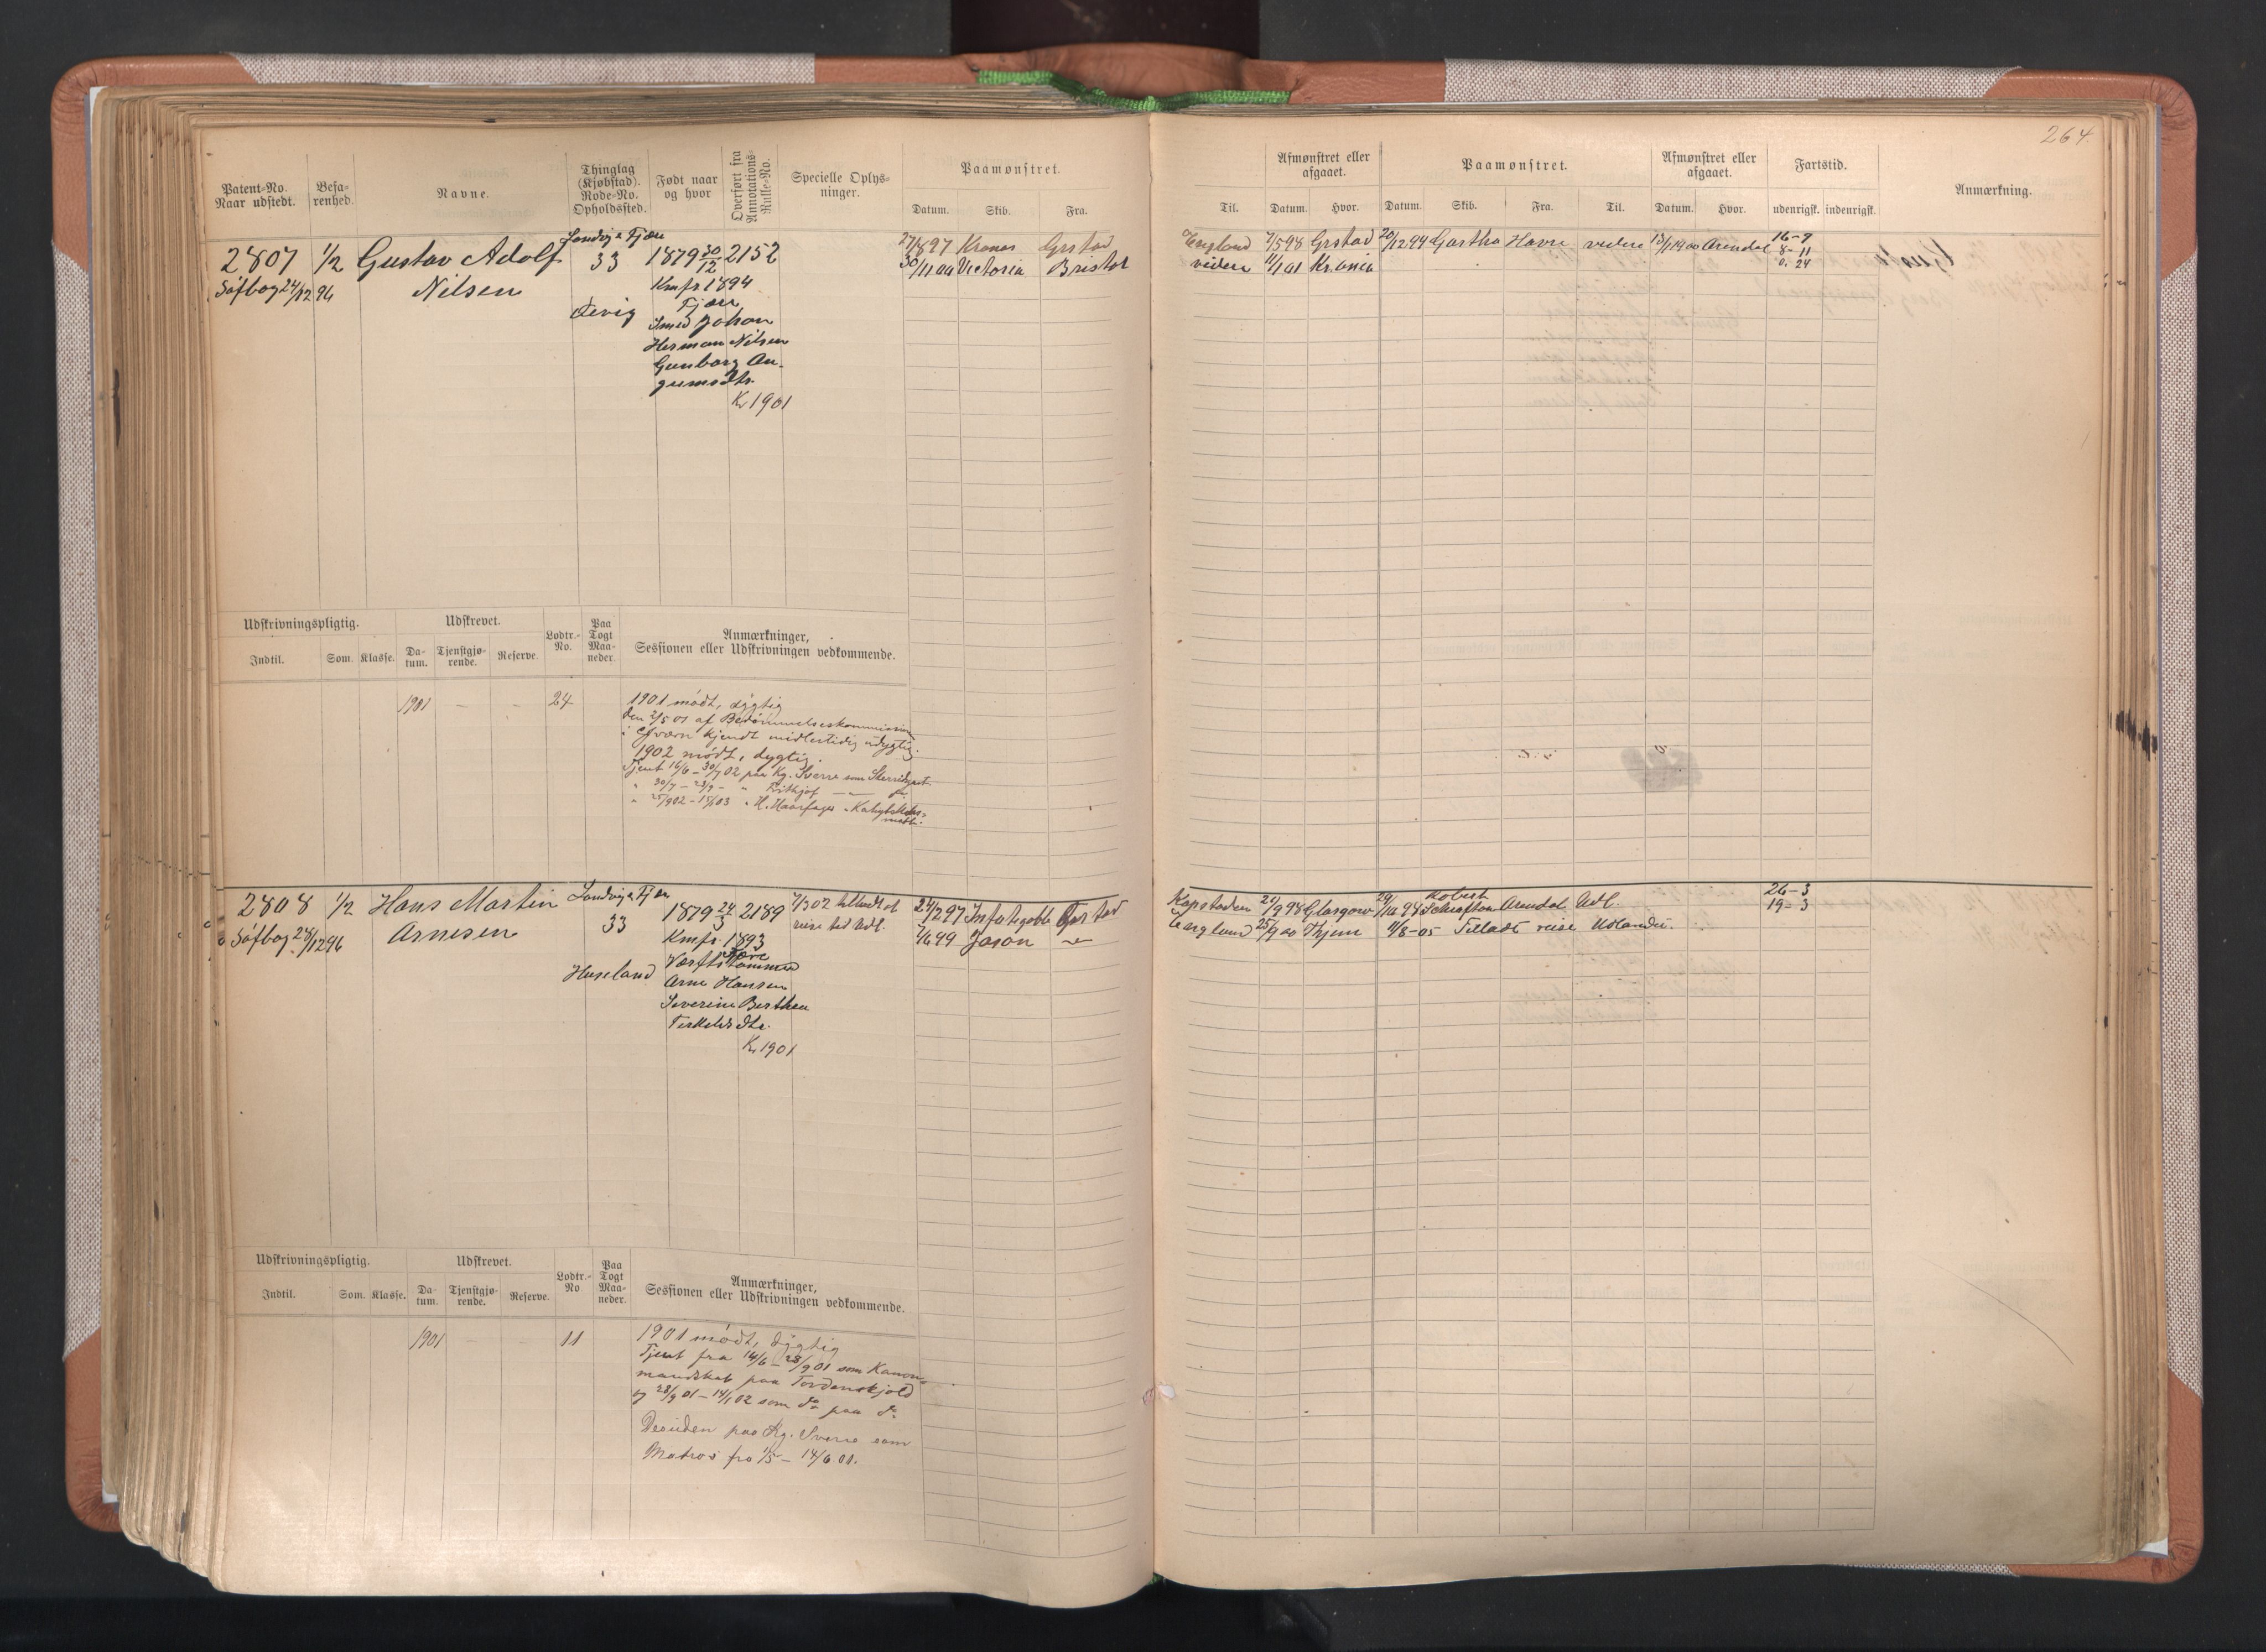 264.
Patent-No. Naar udstedt.
Befarenhed.
Navne.
Thinglag (Kjøbstad). Rode-No. Opholdssted.
Født naar og hvor
Overført fra Annotations-Rulle-No.
Specielle Oplysninger.
Paamønstret.
Datum. Skib. Fra. Til.
Afmønstret eller afgaaet.
Datum. Hvor.
Paamønstret.
Datum. Skib. Fra. Til.
Afmønstret eller afgaaet.
Datum. Hvor.
Fartstid.
udenrigsk. indenrigsk.
Anmærkning.
2807 1/2 Gustav Adolf
Nilsen
Søfbog 24/12 96
Landvig & Fjære
33
1879 30/12 2152
Kmfr 1894
Fjære
Smed Johan
Herman Nilsen
Gunborg
K. 1901
27/8 97 Kronos Grstad England 7/5 98 Grstad 20/12 99 Gartha Havre videre 13/1 1900 Arendal 16-9
30/11 00 Victoria Bristol videre 11/1 01 Kr.ania 8-11
0. 24
Udskrivningspligtig.
Indtil. Som. Klasse.
Udskrevet.
Datum. Tjenstgjørende. Reserve.
Lodtr.-No.
Paa Togt Maaneder.
Anmærkninger,
Sessionen eller Udskrivningen vedkommende.
1901 – – 24
1901 mødt, dygtig
den 2/5 01 af Bedømmelseskommission
kjendt midlertidig udygtig.
1902 mødt, dygtig.
Tjent 16/6 – 30/7 02 paa Kg. Sverre som
" 30/7 – 23/9 – " Fritjof
" 25/9 02 – 15/1 03 " H. Haarfagre
2808 1/2 Hans Martin
Arnesen
Søfbog 28/12 96
Landvig & Fjære
33
Huseland
1879 24/3 2189
Kmfr. 1893
Fjære
Værftstømmer
Arne Hansen
Severine Berthea
Terkelsdtr.
K. 1901
7/3 02 tilladt at
reise til Udl.
24/2 97 Grstad Kapstaden 21/9 98 Glasgow 29/10 98 Robert Arendal Udl. 26-3
7/6 99 Jason – " – England 25/9 00 11/8-05 Tilladt reise Udlandet. 19-3
Udskrivningspligtig.
Indtil. Som. Klasse.
Udskrevet.
Datum. Tjenstgjørende. Reserve.
Lodtr.-No
Paa Togt Maaneder.
Anmærkninger,
Sessionen eller Udskrivningen vedkommende.
1901 – – 11
1901 mødt, dygtig
Tjent fra 14/6 – 28/9 01 som Kanon-
mandskab paa Tordenskjold
og 28/9 01 – 14/1 02 som do paa do
Desuden paa Kg. Sverre som
Matros fra 1/5 – 14/6 01.